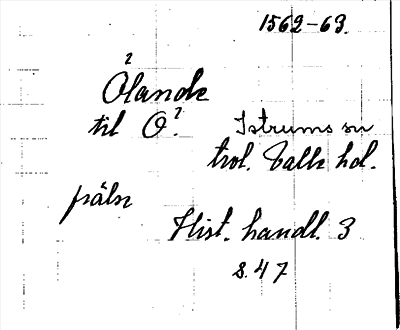 1562-63.
2
Ölande
til O?
Istrums sn
trol. Valle hd.
pälsn
Hist. handl. 3
s. 47